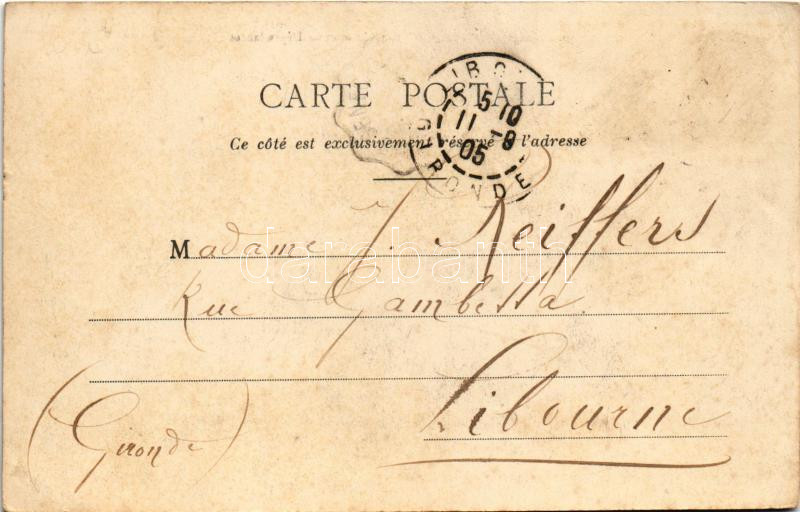 CARTE POSTALE
Ce côté est exclusivement réservé à l'adresse
5 10
11 -9
05
GIRONDE
Madame J. Reiffers
Rue Gambetta
Libourne
(Gironde)
darabanth